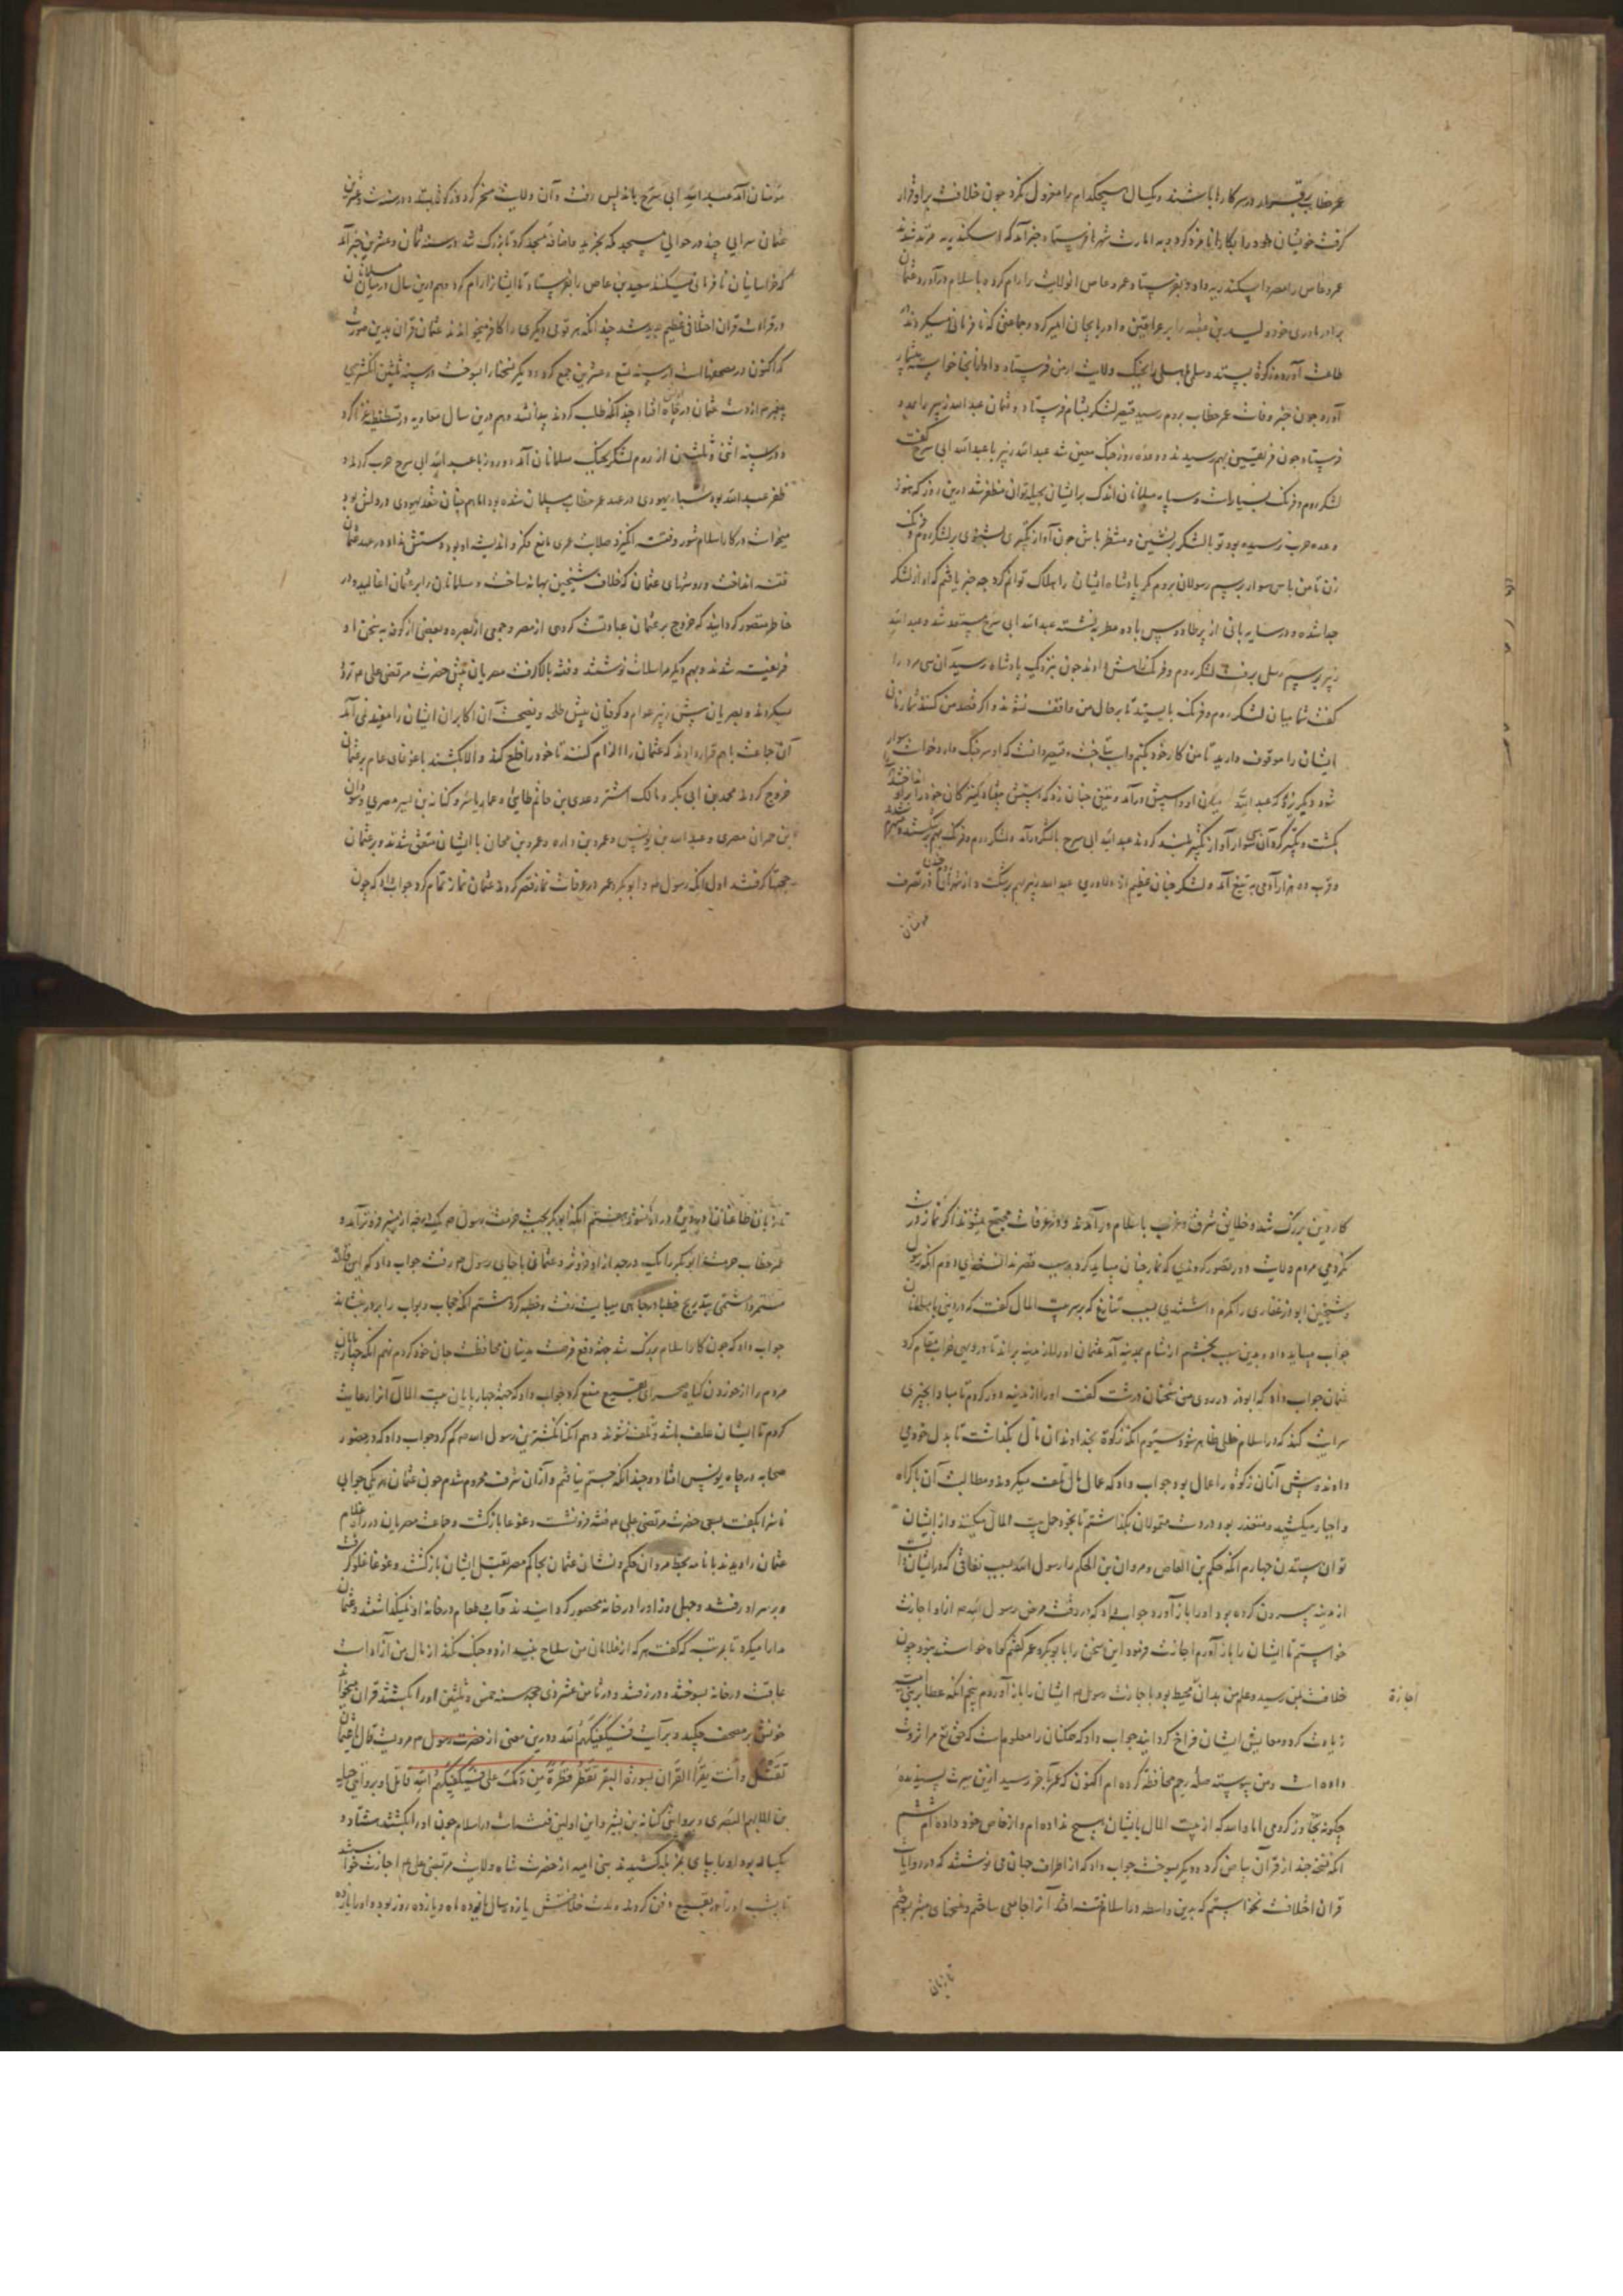 عمر خطاب برقرار در سر کارها باشند و یکسال هیچکدام را معزول نکرد چون خلافت برو قرار
گرفت خویشان خود را بکارها نامزد کرد و به امارت شهرها فرستاد خبر آمد که اسکندریه مرتد شدند
عمرو عاص را مصر داد و باسکندریه فرستاد و عمرو عاص آن ولایت را رام کرد و باسلام درآورد و عثمان
برادر مادری خود ولید بن عقبه را بر عراقین و آذربایجان امیر کرد و جماعتی که نافرمانی میکردند
طاعت آورده زکوة بستد و سلمان باهلی را بجنک ولایت ارمن فرستاد و او از آنجا خواسته بیشمار
آورد چون خبر وفات عمر خطاب بروم رسید قیصر لشکر بشام فرستاد و عثمان عبدالله زبیر را بمدد
فرستاد چون فریقین بهم رسیدند و وعده روز جنک معین شد عبدالله زبیر با عبدالله ابی سرح گفت
لشکر روم و فرنک بسیارست و سپاه مسلمانان اندک بر ایشان بحیله توان مظفر شد درین روز که هنوز
وعده حرب نرسیده بود تو با لشکر برنشین و منتظر باش چون آواز تکبیر شنوی بر لشکر روم و فرنک
زن تا من با سی سوار برسم رسولان بروم مکر پادشاه ایشان را هلاک توانم کرد چه خبر یافتم که او از لشکر
جدا شده و در سایه بانی از پر طاوس باده مطربه نشسته عبدالله ابی سرح مستعد شد و عبدالله
زبیر برسم رسل برفت لشکر روم و فرنک راهش دادند چون نزدیک پادشاه رسید آن سی مرد را
کفت شما میان لشکر روم و فرنک بایستید تا بر حال من واقف نشوند و اگر قصد من کنند شما زمان
ایشان را موقوف دارید تا من کار خود بکنم و اسب بتاخت و قیصر دانست که او سر جنک دارد خواست سوار
شود و دیگر نزد که عبدالله اندر آمد و تیغی چنان زد که پیش پناه کنیزکان خود را برو انداختند
بکشت و تکبیر کرد آن سی سوار آواز تکبیر بلند کردند عبدالله ابی سرح با لشکر درآمد و لشکر روم و فرنک بهم برشدند
و قرب ده هزار آدمی به تیغ آمد و لشکر چنان عظیم از دلاوری عبدالله زبیر بهم برگشت و از شهرها در تصرف
مؤمنان
مؤمنان آمد عبدالله ابی سرح باندلس رفت و آن ولایت مسخر کرد و زکوة بستد و در سنه ست و عشرین
عثمان سرایی چند در حوالی مسجد مکه بخرید و اضافه مسجد کرد تا بزرک شد و در سنه ثمان و عشرین خبر آمد
که خراسانیان نافرمانی میکنند سعید بن عاص را بفرستاد تا ایشانرا رام کرد و هم درین سال در میان مسلمانان
در قراءت قران اختلافی عظیم پدید شد چنانکه هر قومی دیگری را کافر میخواندند عثمان قران بدین صورت
که اکنون در مصحفهاست در سنه تسع و عشرین جمع کرد و دیگر نسختها را بسوخت و در سنه ثلثین انگشتری
پیغمبر از دست عثمان در چاه اریس افتاد و چندانکه طلب کردند پیدا نشد و هم درین سال معاویه در قسطنطنیه غزا کرد
و در سنه اثنی و ثلثین از روم لشکر بجنک مسلمانان آمد و در دریا با عبدالله ابی سرح حرب کردند و
ظفر عبدالله بود سبا یهودی در عهد عمر خطاب مسلمان شده بود اما همچنان حقد یهودی در دلش بود
میخواست در کار اسلام شور و فتنه انگیزد صلابت عمری مانع فکر و اندیشه او بود و دستش نداد در عهد عثمان
فتنه انداخت و روشهای عثمان که خلاف شیخین بهانه ساخت و مسلمانان را بر عثمان اغالید و در
خاطر متصور گردانید که خروج بر عثمان عبادت کردی از مصر و جمعی از بصره و بعضی از کوفه به سخن او
فریفته شدند و بهم دیگر مراسلات نوشتند و فتنه بالا گرفت مصریان پیش حضرت مرتضی علی م تردد
میکردند و بصریان پیش زبیر عوام و کوفیان پیش طلحه و نصیحت آن اکابران ایشان را مفید نمی آمد
آن جماعت باهم قرار دادند که عثمان را الزام کنند تا خود را خلع کند و الا بکشند با غوغای عام بر عثمان
خروج کردند محمد بن ابی بکر و مالک اشتر و عدی بن حاتم طایی و عمار یاسر و کنانه بن بشیر مصری و سودان
بن حمران مصری و عبدالله بن یونس و عمرو بن داره و عمرو بن محان با ایشان متفق شدند و بر عثمان
حجتها گرفتند اول آنکه رسول ص و ابوبکر و عمر در عرفات نماز قصر کردند عثمان نماز تمام کرد جواب داد که چون
کار دین بزرک شد و خلایق شرق و غرب باسلام درآمدند و در عرفات مجتمع میشوند اگر نماز درست
نکردمی مردم ولایت دور تصور کردندی که نماز چنان میباید کرد و سبب قصر ندانستندی دوم آنکه رسول
و شیخین ابوذر غفاری را مکرم داشتندی بسبب تنازع که بر سر بیت المال گفت که در وی با مسلمانان
جواب میباید داد و بدین سبب بخشم از شام بمدینه آمد عثمان او را از مدینه براند تا در دیهی خراب مقام کرد
عثمان جواب داد که ابوذر در روی من سخنان درشت گفت او را از مدینه دور کردم تا مبادا بدیگری
سرایت کند که در اسلام خللی ظاهر شود سیوم آنکه زکوة بخداوندان مال بگذاشت تا بدل خود می
دادند و پیش ازان زکوة را عمال بود جواب داد که عمال مال تلف میکردند و مطالبت آن باکراه
و اجبار میکشید و متعذر بود در دست متمولان بگذاشتم تا بخود حمل بیت المال میکنند و از ایشان
توان ستدن چهارم آنکه حکم بن العاص و مروان بن الحکم را رسول الله بسبب نفاقی که در ایشان
از مدینه بیرون کرده بود او را باز آورد جواب داد که در وقت مرض رسول الله ص ازو اجازت
خواستم تا ایشان را باز آورم اجازت فرمود این سخن را با ابوبکر و عمر گفتم گواه خواستند نبود چون
خلافت بمن رسید و علم من بدان محیط بود باجازت رسول ص ایشان را باز آوردم پنجم آنکه عطا بر بنی امیه
اجازة
زیادت کرد و معایش ایشان فراخ گردانید جواب داد که همگنان را معلوم است که حق تع مرا ثروت
داده است و من پیوسته صله رحم محافظه کرده ام اکنون که عمر باخر رسید ازین سیرت پسندیده
چگونه تجاوز کردمی اما والله که از بیت المال بایشان هیچ نداده ام و از خاص خود داده ام ششم
آنکه نسخه چند از قرآن بیاض کرد و دیگر بسوخت جواب داد که از اطراف جهان می نوشتند که در روایات
قران اختلافست نخواستم که بدین واسطه در اسلام فتنه افتد آنرا جامعی ساختم و نسخهای مبتر بسوختم
تا زبان
تا زبان طاعنان در دین دراز نشود هفتم آنکه ابوبکر بجهت حرمت رسول ص یک درجه از منبر فروتر آمد و
عمر خطاب حرمت ابوبکر را یک درجه ازو فروتر و عثمان با جای رسول ص رفت جواب داد که این قاعده
مستمر داشتمی بتدریج خطبا در چاهی میبایست رفت و خطبه کرد هشتم آنکه حجاب و بواب را بر در نشاند
جواب داد که چون کار اسلام بزرک شد جهت دفع فرصت بدینان محافظت جان خود کردم نهم آنکه چهارپایان
مردم را از خوردن گیاه صحرای بقیع منع کرد جواب داد که جهت چهارپایان بیت المال آنرا رعایت
کردم تا ایشان علف باشد و تلف نشوند دهم آنکه انگشترین رسول الله ص گم کرد جواب داد که در حضور
صحابه در چاه یونس افتاد و چندانکه جستم نیافتم و ازان شرف محروم شدم چون عثمان هر یکی جوابی
ناسزا بگفت بسعی حضرت مرتضی علی م فتنه فرونشست و غوغا بازگشت و جماعت مصریان در راه غلام
عثمان را دیدند با نامه بخط مروان حکم و نشان عثمان بحاکم مصر بقتل ایشان بازگشتند و غوغا غلو گرفت
و بر سر او رفتند و چهل روز او را در خانه محصور گردانیدند و آب و طعام در خانه او نمیگذاشتند و عثمان
مدارا میکرد تا بمرتبه که گفت هر که از غلامان من سلاح بیندازد و جنک نکند از مال من آزاد است
عاقبت در خانه بسوختند و در رفتند و در ثامن عشر ذی حجه سنه خمس و ثلثین او را بکشتند قران میخواند
خونش بر مصحف چکید و بر آیت فَسَیَکْفِیکَهُمُ اللَّه و درین معنی از حضرت رسول ص مرویست قال یا عثمان
تُقتَل و أنت یقرأ القرآن بسورة البقر تَقْطُرُ قَطرَةٌ مِن دَمِکَ علی فَسَیَکْفِیکَهُمُ اللَّه قاتل او بروایتی جبله
بن الایهم البصری و بروایتی کنانه بن بشر و این اولین فتنه است در اسلام چون او را بکشتند هشتاد و
یکساله بود او را بپای بمزبله کشیدند بنی امیه از حضرت شاه ولایت مرتضی علی م اجازت خواستند
تا بشب او را در بقیع دفن کردند مدت خلافتش یازده سال و یازده ماه و یازده روز بود و او را یازده